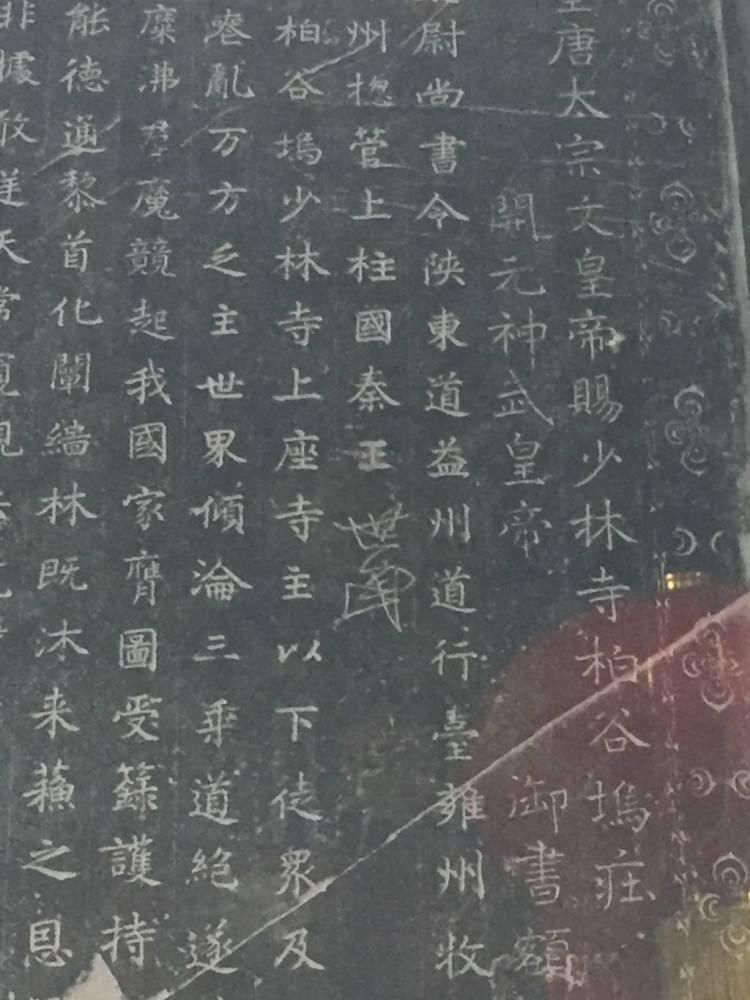 唐太宗文皇帝賜少林寺柏谷塢莊
開元神武皇帝 御書額
尉尚書令陝東道益州道行臺雍州牧
州揔管上柱國秦王世民
柏谷塢少林寺上座寺主以下徒眾及
亂万方乏主世界傾淪三乘道絕遂
糜沸群魔競起我國家膺圖受籙護持
能德通黎首化闡緇林既沐来蘇之恩